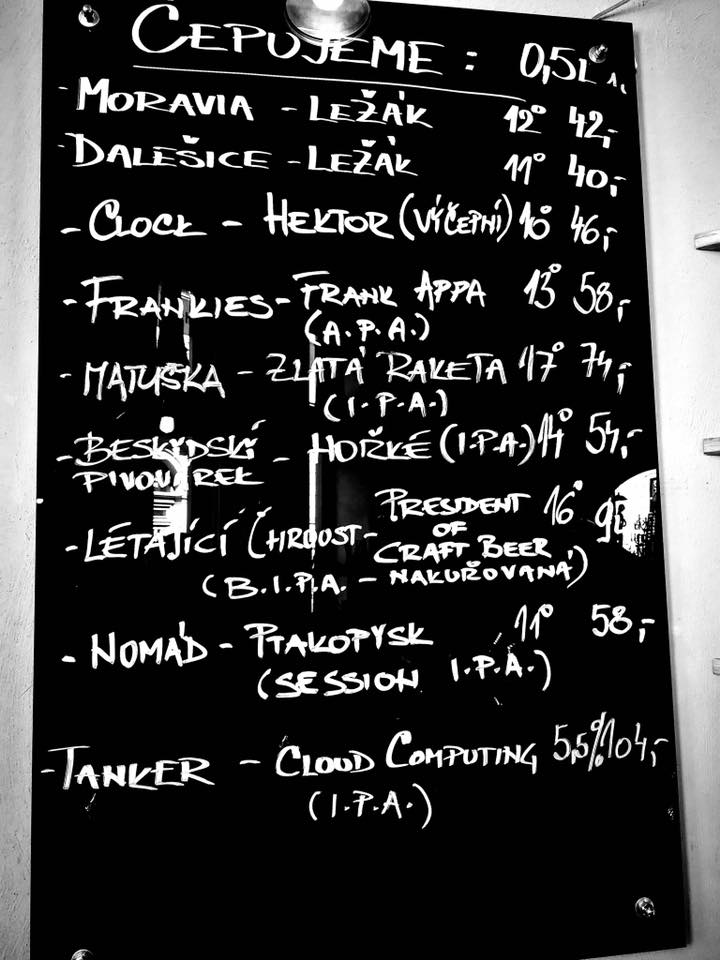 ČEPUJEME : 0,5L
- MORAVIA - LEŽÁK 12° 42,-
- DALEŠICE - LEŽÁK 11° 40,-
- CLOCK - HEKTOR (VÝČEPNÍ) 10° 46,-
- FRANKIES - FRANK APPA 13° 58,-
(A.P.A.)
- MATUŠKA - ZLATÁ RAKETA 17° 74,-
(I.P.A.)
- BESKYDSKÝ - HOŘKÉ (I.P.A.) 14° 54,-
PIVOVÁREK
- LÉTAJÍCÍ ČHROOST - PRESIDENT 16°
OF
CRAFT BEER
(B.I.P.A. - NAKUŘOVANÁ)
- NOMÁD - PTAKOPYSK 11° 58,-
(SESSION I.P.A.)
- TANKER - CLOUD COMPUTING 5,5% 104,-
(I.P.A.)